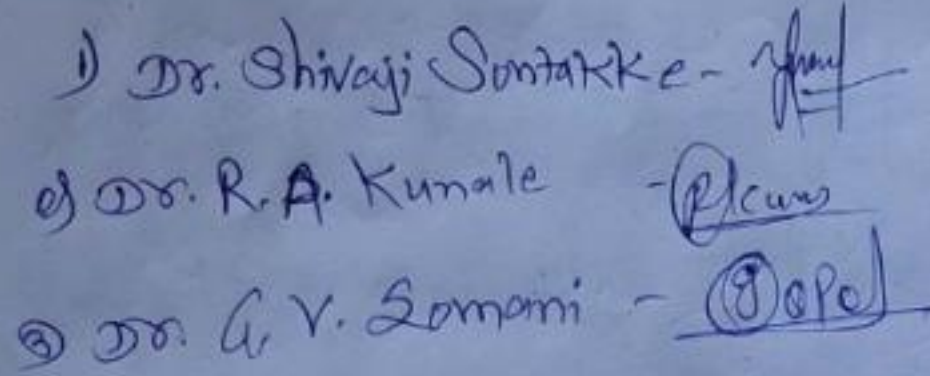 1) Dr. Shivaji Sontakke -
2) Dr. R. A. Kunale -
3) Dr. G. V. Somani -